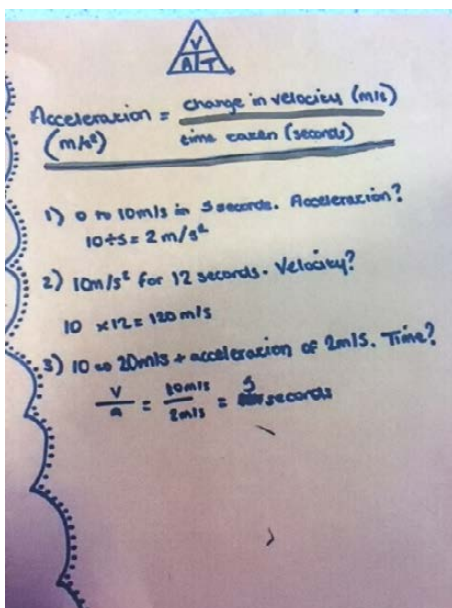 V
A T
Acceleration = change in velocity (m/s)
(m/s²) time taken (seconds)
1) 0 to 10m/s in 5 seconds. Acceleration?
10÷5= 2 m/s²
2) 10m/s² for 12 seconds. Velocity?
10 ×12= 120 m/s
3) 10 to 20m/s + acceleration of 2m/s. Time?
V/a = 10m/s/2m/s = 5 seconds